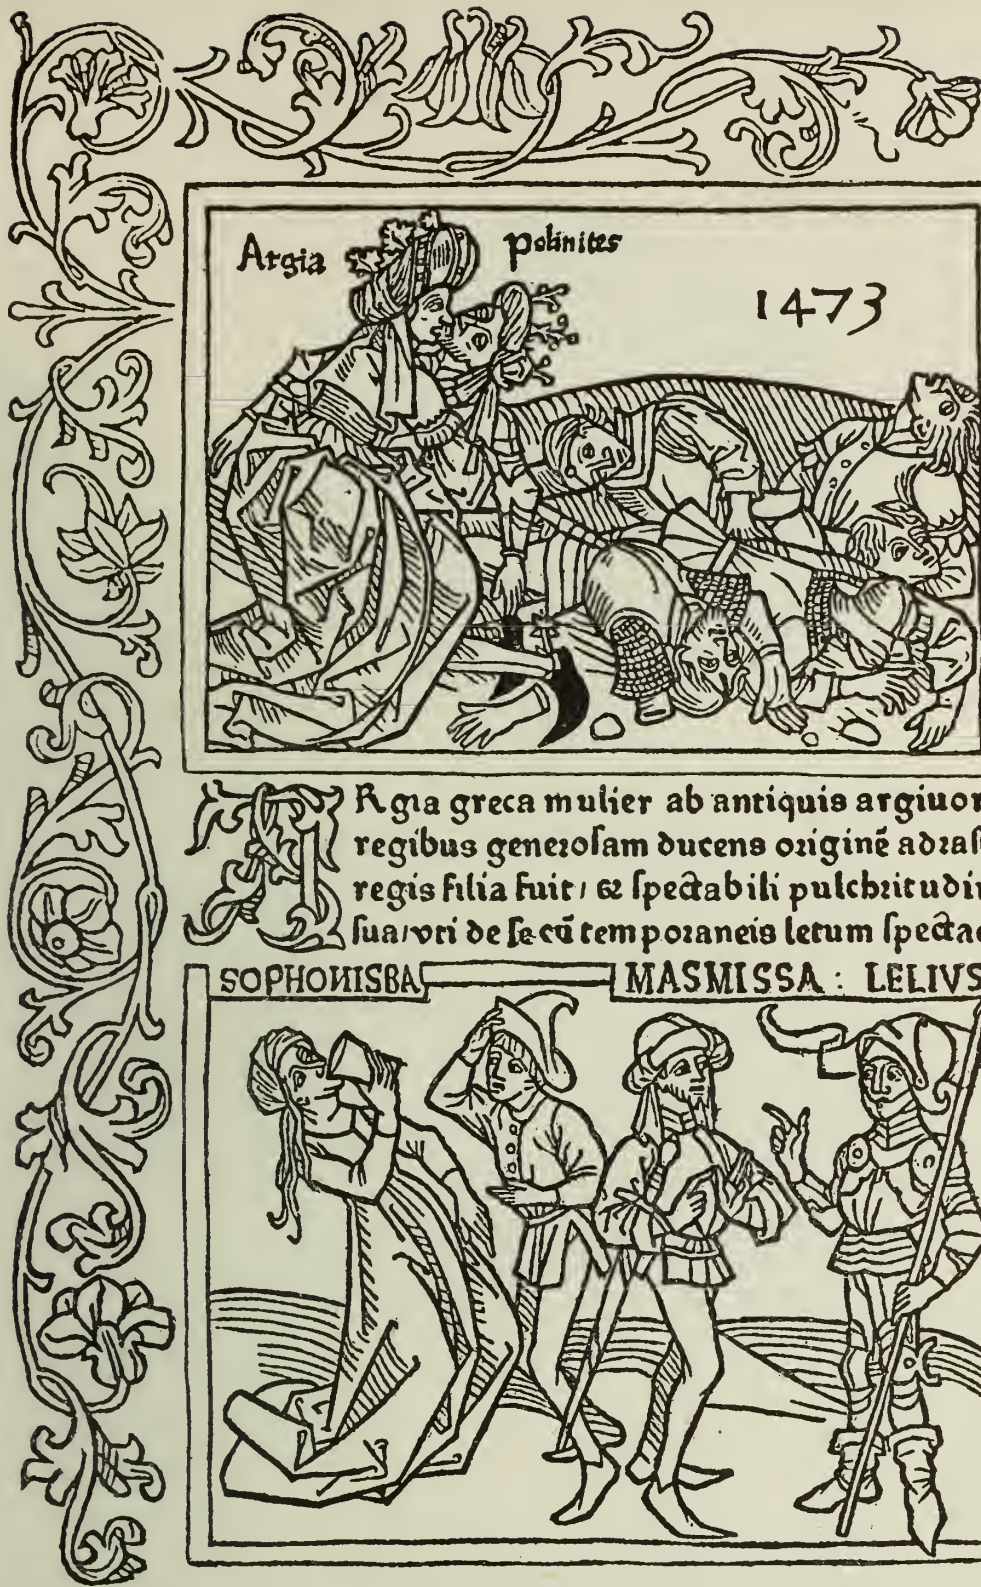 Argia polinites
1473
ARgia greca mulier ab antiquis argiuor
regibus generosam ducens originē adras
regis filia fuit / & spectabili pulchritudin
sua / vti de se cū temporaneis letum spectac
SOPHONISBA MASMISSA : LELIVS